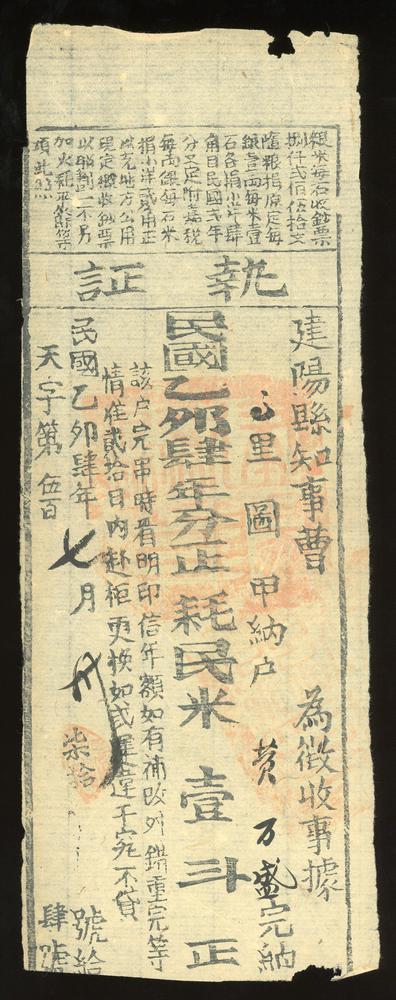 銀米每石收鈔票
捌仟弍佰伍拾文
隨粮捐原定每
銀壹兩每米壹
石各捐小洋肆
角自民國弍年
分又定附加稅
每兩銀每石米
捐小洋弍角正
以充地方公用
規定徵收鈔票
以昭劃一不另
加火耗平餘等
項此照
執證
建陽縣知事曹 為徵收事據
里圖甲納户黄万盛完納
民國乙夘肆年分正耗民米壹斗正
該户完串時看明印信年額如有補改舛錯重完等
情准貳拾日内赴柜更换如或遲違干究不貸
民國乙夘肆年七月 號給
天字第伍百柒拾肆號